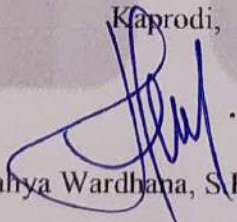 Kaprodi,
ahya Wardhana, S.